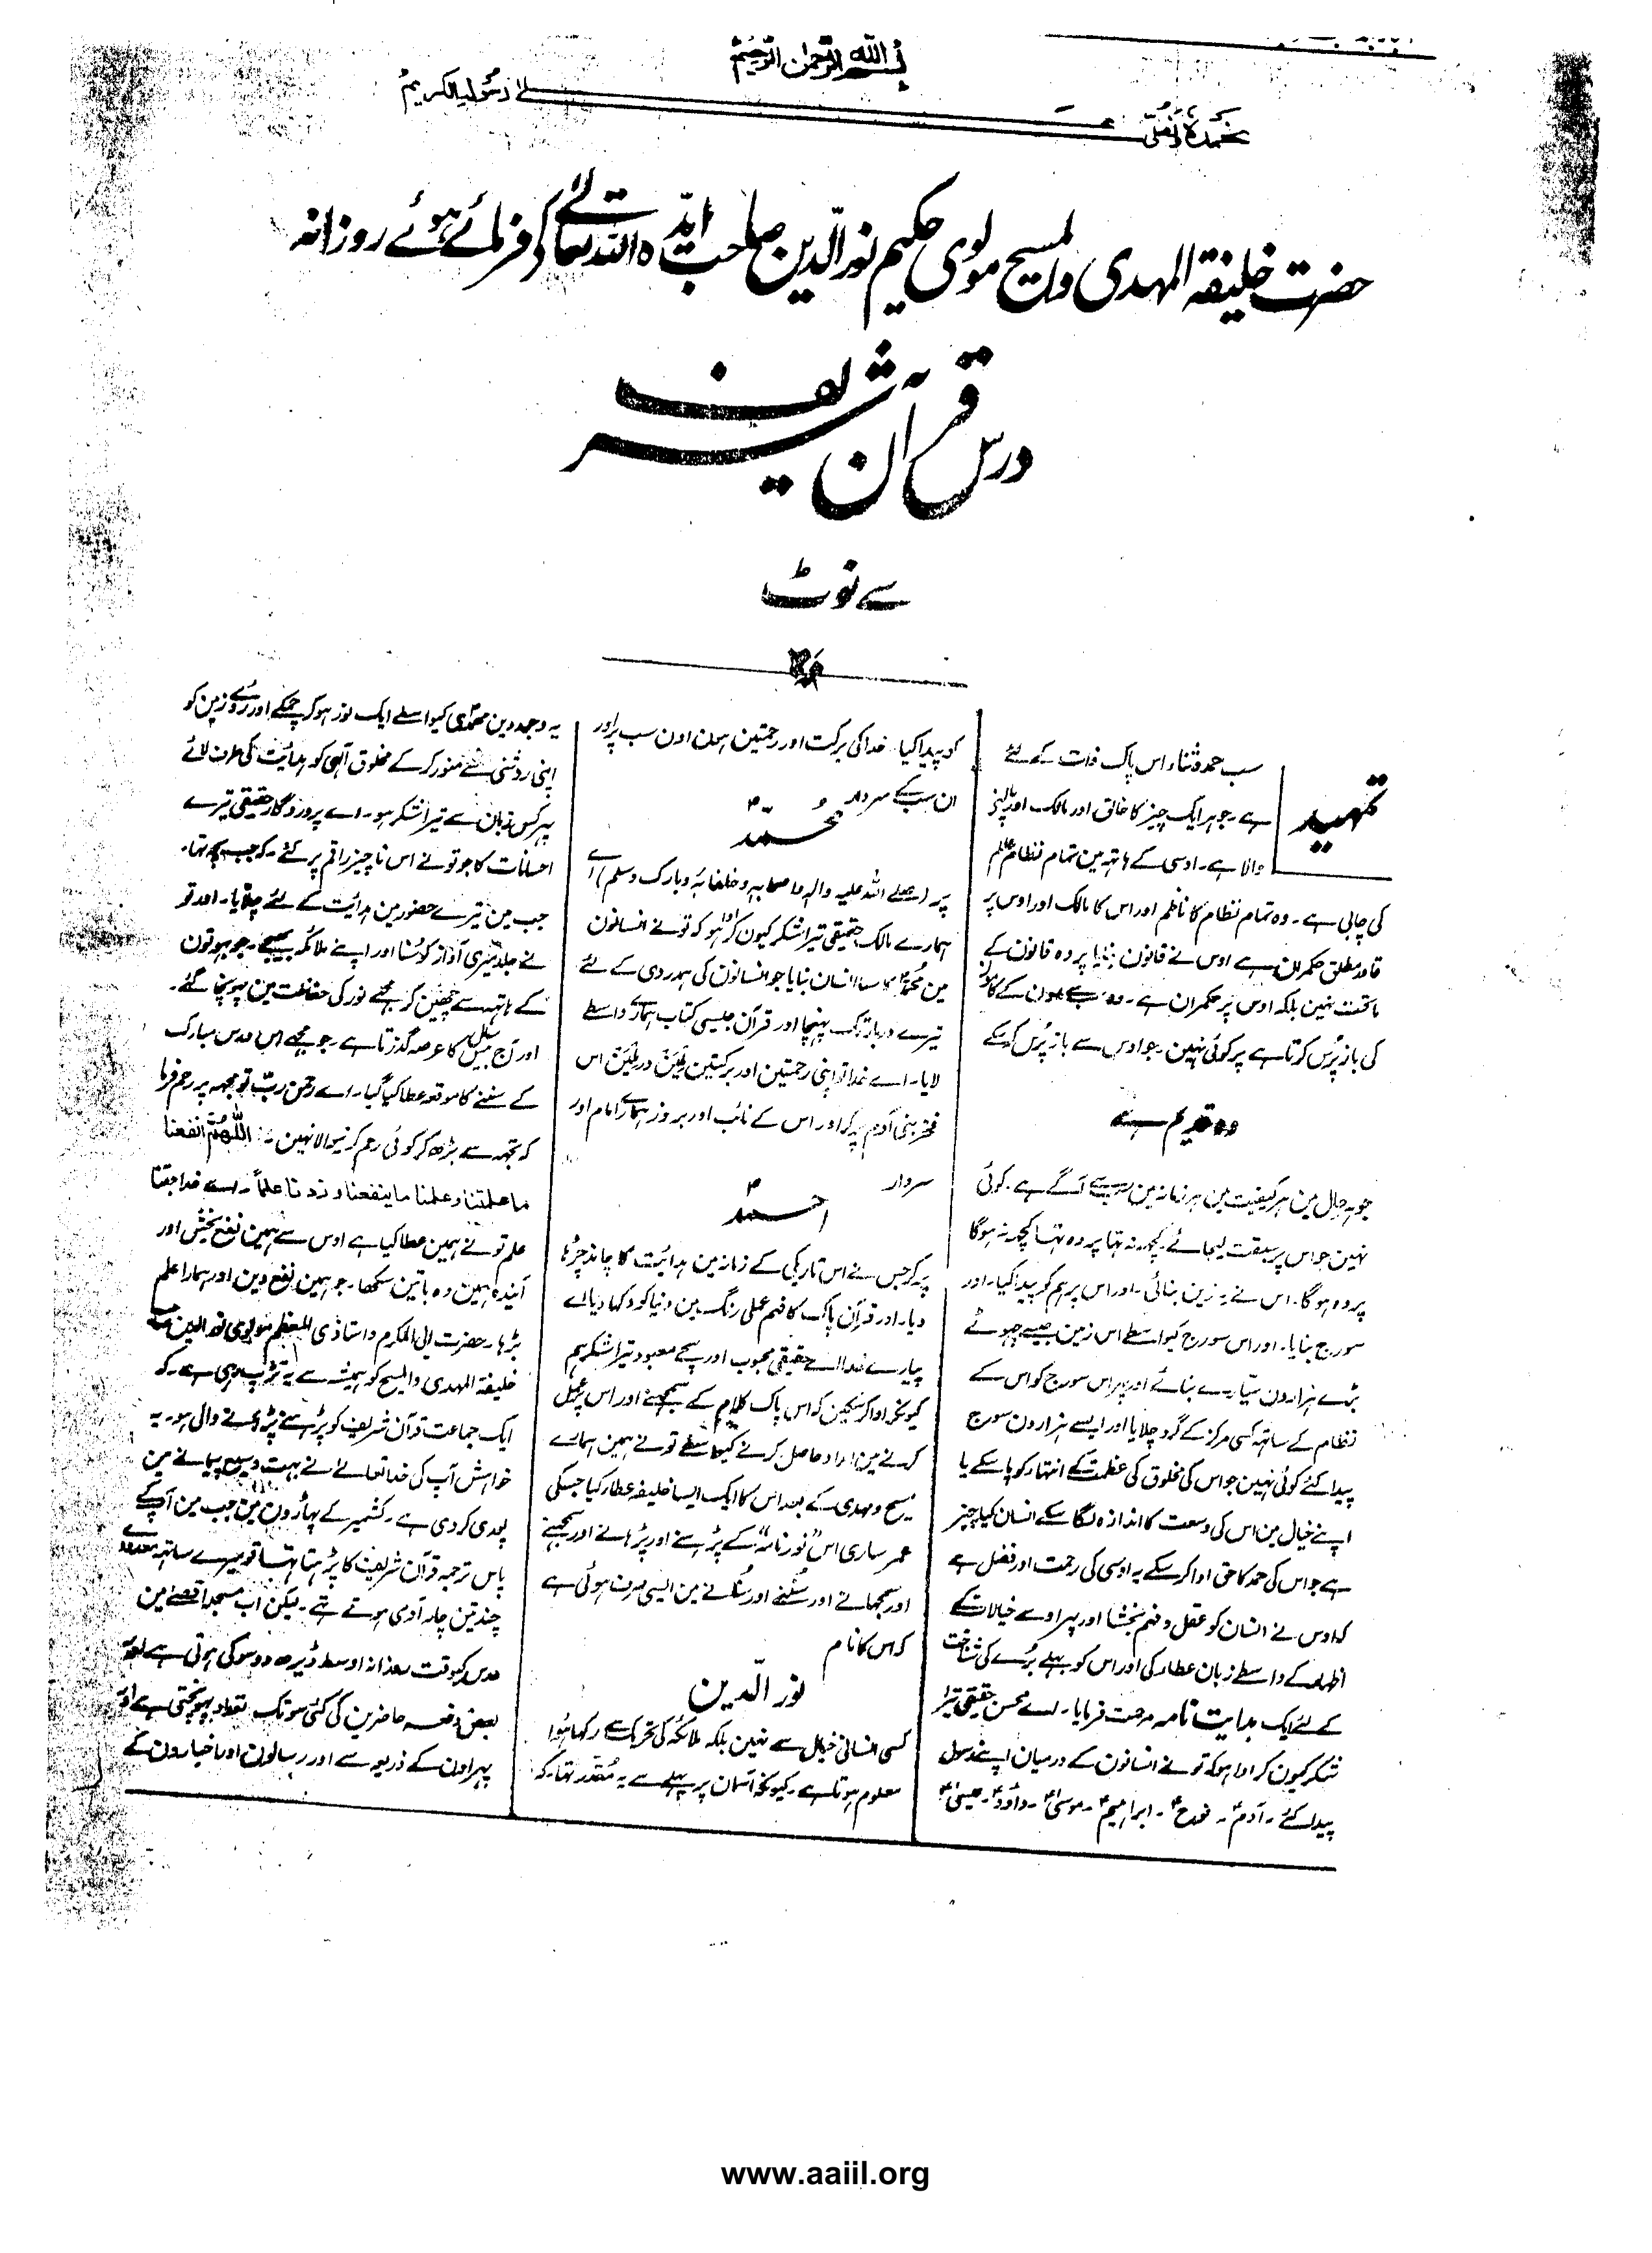 بسم الله الرحمن الرحیم
نحمده ونصلی علے رسوله الکریم
حضرت خلیفة المہدی والمسیح مولوی حکیم نور الدین صاحب ایدہ اللہ تعالےٰ کے فرمائے ہوئے روزانہ
درس قرآن شریف
سے نوٹ
تمہید
سب حمد و ثناء اس پاک ذات کے لئے
ہے۔ جو ہر ایک چیز کا خالق اور مالک اور پالنے
والا ہے۔ اوسی کے ہاتہہ مین تمام نظام عالم
کی چابی ہے۔ وہ تمام نظام کا ناظم اور اس کا مالک اور اوس پر
قادر مطلق حکمران ہے اوس نے قانون بنایا پر وہ قانون کے
ماتحت نہین بلکہ اوس پر حکمران ہے۔ وہ سب کے کامون
کی باز پُرس کرتا ہے پر کوئی نہین۔ جو اوس سے باز پُرس کر سکے
وہ قدیم ہے
جو ہر حال مین ہر کیفیت مین ہر زمانہ مین سب سے آگے ہے۔ کوئی
نہین جو اس پر سبقت لیجائے۔ کچہہ نہ تہا پر وہ تہا کچہہ نہ ہوگا
پر وہ ہوگا۔ اس نے یہ زمین بنائی۔ اور اس پر ہم کو پیدا کیا۔ اور
سورج بنایا۔ اور اس سورج کیواسطے اس زمین جیسے چہوٹے
بڑے ہزارون سیّارے بنائے اور پہر اس سورج کو اس کے
نظام کے ساتہہ کسی مرکز کے گرد چلایا اور ایسے ہزارون سورج
پیدا کئے کوئی نہین جو اس کی مخلوق کی عظمت کے انتہاء کو پا سکے یا
اپنے خیال مین اس کی وسعت کا اندازہ لگا سکے انسان کیا چیز
ہے جو اس کی حمد کا حق ادا کر سکے یہ اوسی کی رحمت اور فضل ہے
کہ اوس نے انسان کو عقل و فہم بخشا اور پہر اوسے خیالات کے
اظہار کے واسطے زبان عطاء کی اور اس کو بہلے بُرے کی شناخت
کے لئے ایک ہدایت نامہ مرحمت فرمایا۔ اے محسن حقیقی تیرا
شکر کیون کر ادا ہو کہ تو نے انسانون کے درمیان اپنے رسول
پیدا کئے۔ آدمؑ۔ نوحؑ۔ ابراہیمؑ۔ موسیٰؑ۔ داؤدؑ۔ عیسیٰؑ
کو پیدا کیا۔ خدا کی برکت اور رحمتین ہون اون سب پر اور
ان سب کے سردار
محمدؐ
پر (صلے اللہ علیہ والہ واصحابہ وخلفائہ وبارک وسلم) اے
ہمارے مالک حقیقی تیرا شکر کیون کر ادا ہو کہ تو نے انسانون
مین محمدؐ سا انسان بنایا جو انسانون کی ہمدردی کے لئے
تیرے دربار تک پہنچا اور قرآن جیسی کتاب ہمارے واسطے
لایا۔ اے خدا تو اپنی رحمتین اور برکتین رحمتین در رحمتین اس
فخر بنی آدم پر کر اور اس کے نائب اور بروز ہمارے امام اور
سردار
احمدؑ
پر کر جس نے اس تاریکی کے زمانہ مین ہدایت کا چاند چڑہا
دیا۔ اور قرآن پاک کا فہم عملی رنگ مین دنیا کو دکہا دیا اے
پیارے خدا اے حقیقی محبوب اور سچے معبود تیرا شکر ہم
کیونکر ادا کر سکین کہ اس پاک کلام کے سمجہنے اور اس پر عمل
کرنے مین امداد حاصل کرنے کیواسطے تو نے ہمین ہمارے
مسیح و مہدی کے بعد اس کا ایک ایسا خلیفہ عطاء کیا جسکی
عمر ساری اس "نور نامہ" کے پڑہنے اور پڑہانے اور سمجہنے
اور سمجہانے اور سُننے اور سُنانے مین ایسی صرف ہوئی ہے
کہ اس کا نام
نور الدین
کسی انسانی خیال سے نہین بلکہ ملائکہ کی تحریک سے رکہا ہوا
معلوم ہوتا ہے۔ کیونکہ آسمان پر پہلے سے یہ مُقدر تہا۔ کہ
یہ وجود دین محمدی کیواسطے ایک نور ہو کر چمکے اور روئے زمین کو
اپنی روشنی سے منور کر کے مخلوق الٰہی کو ہدایت کی طرف لائے
پہر کس زبان سے تیرا شکر ہو۔ اے پروردگار حقیقی تیرے
احسانات کا جو تو نے اس ناچیز راقم پر کئے۔ کہ جب بچہ تہا۔
جب مین تیرے حضور مین ہدایت کے لئے چلایا۔ اور تو
نے جلد میری آواز کو سُنا اور اپنے ملائکہ بہیجے۔ جو بہوتون
کے ہاتہہ سے چہین کر مجہے نور کی حفاظت مین پہونچا گئے۔
اور آج بیس سال کا عرصہ گذرتا ہے۔ جو مجہے اس درس مبارک
کے سننے کا موقعہ عطا کیا گیا۔ اے رحمن ربّ تو مجہہ پر رحم فرما
کہ تجہہ سے بڑھ کر کوئی رحم کرنیوالا نہین۔ اللّٰهُمَّ انفعنا
ما علمتنا وعلمنا ما ینفعنا وزدنا علماً۔ اے خدا جتنا
علم تو نے ہمین عطا کیا ہے اوس سے ہمین نفع بخش اور
آیندہ ہمین وہ باتین سکہا۔ جو ہمین نفع دین اور ہمارا علم
بڑہا۔ حضرت ابی المکرم و استاذی المعظم مولوی نور الدین صاحب
خلیفة المہدی والمسیح کو ہمیشہ سے یہ تڑپ رہی ہے۔ کہ
ایک جماعت قرآن شریف کو پڑہنے پڑہانے والی ہو۔ یہ
خواہش آپ کی خدا تعالےٰ نے بہت وسیع پیمانے مین
پوری کر دی ہے۔ کشمیر کے پہاڑون مین جب مین آپ کے
پاس ترجمہ قرآن شریف کا پڑہتا تہا تو میرے ساتہہ
چند تین چار آدمی ہوتے تہے۔ لیکن اب مسجد اقصےٰ مین
درس کیوقت روزانہ اوسط ڈیڑھ دو سو کی ہوتی ہے اور
بعض دفعہ حاضرین کی کئی سو تک تعداد پہونچتی ہے اور
پہر اون کے ذریعہ سے اور رسالون اور اخبارون کے
www.aaiil.org